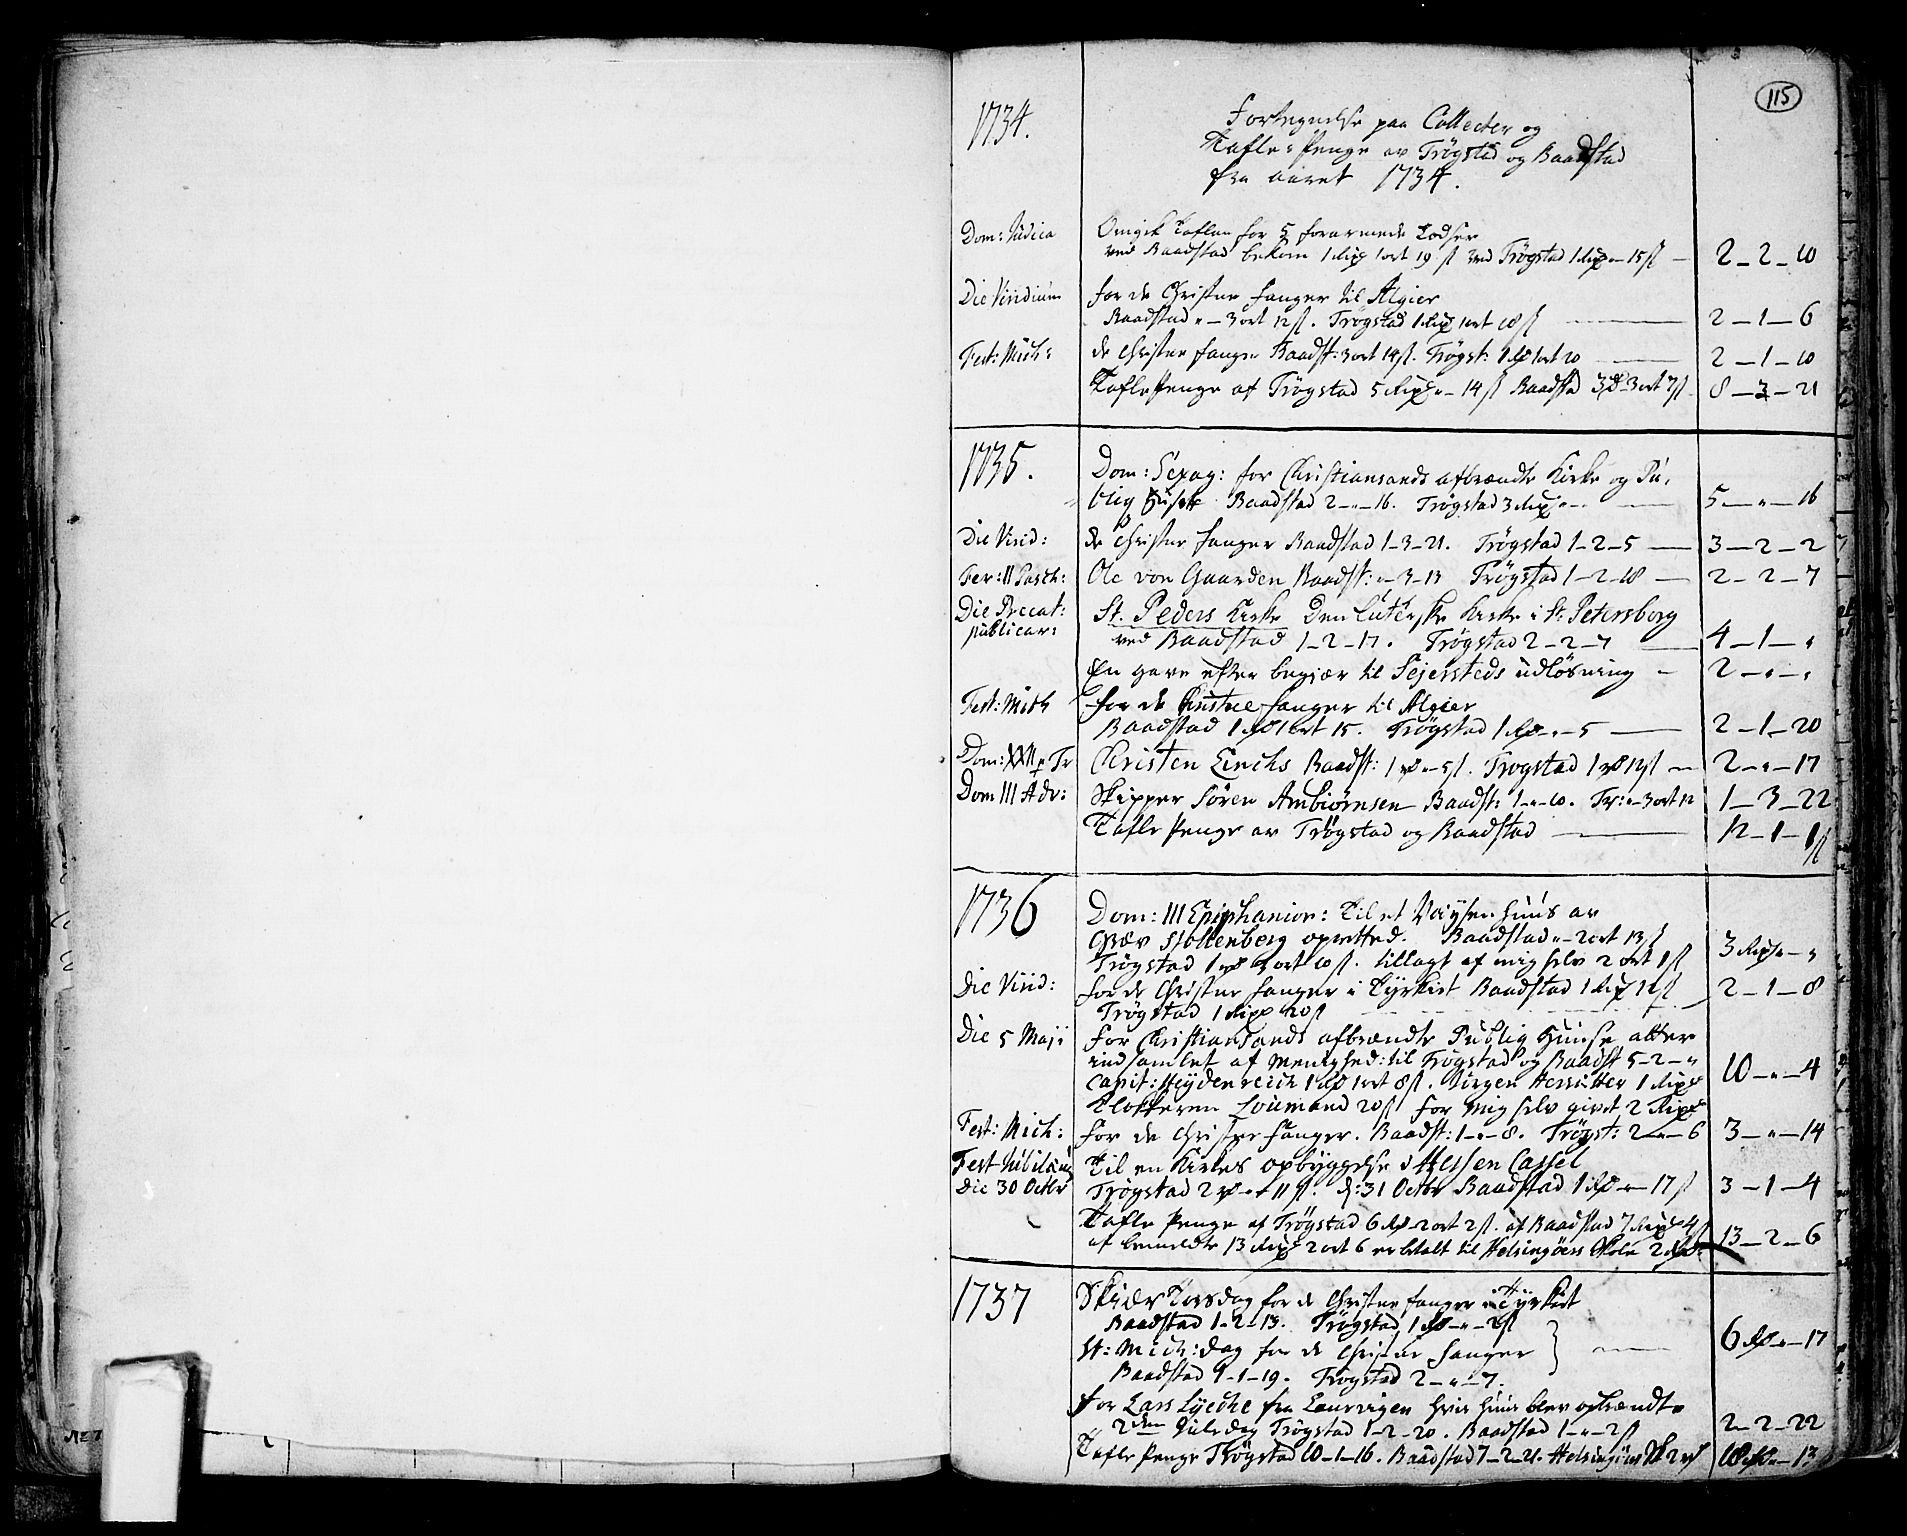 115
1734. Fortegnelse paa Collecter og
Tafle-Penge av Trøgstad og Baadstad
fra aaret 1734.
Dom: Judica Omgik Taflen for 5 forarmede Lodser
ved Baadstad bekom 1 Rixd 1 ort 19 s ved Trøgstad 1 Rixd - 15 s 2-2-10
Die Viridium for de Christne Fanger til Algier
Baadstad " - 3 ort 12 s. Trøgstad 1 Rixd 1 ort 18 s 2-1-6
Fest: Mich: de Christne Fanger Baadst: 3 ort 14 s. Trøgst: 1 Rd 1 ort 20 2-1-10
Tafle Penge af Trøgstad 5 Rixd " - 14 s Baadstad 3 Rd 3 ort 7 s 8-3-21
1735. Dom: Sexag: for Christiansands afbrændte Kirke og Pu-
blig Huse Baadstad 2-"-16. Trøgstad 3 Rixd "-" 5-"-16
Die Virid: de Christne Fanger Baadstad 1-3-21. Trøgstad 1-2-5 3-2-2
Fer: II Pasch: Ole von Gaarden Baadst: "-3-13 Trøgstad 1-2-18 2-2-7
Die Precat: St. Peders Kirke Den Luterske Kirke i St. Petersborg
publicar: ved Baadstad 1-2-17. Trøgstad 2-2-7 4-1-"
En gave efter begjær til Sejersteds udløsning 2-"-"
Fest: Mich for de Christne Fanger til Algier
Baadstad 1 Rd 1 ort 15. Trøgstad 1 Rd-"-5 2-1-20
Dom: XXII p Tr Christen Linchs Baadst: 1 rd "-5 s. Trøgstad 1 rd 12 s 2-"-17
Dom III Adv: Skipper Søren Ambiørnsen Baadst: 1-"-10. Tr: "-3 ort 12 1-3-22
Tafle Penge av Trøgstad og Baadstad 12-1-1 s
1736 Dom: III Epiphanior: Til et Vaysenhuus av
Grev Stollenberg opretted. Baadstad "-2 ort 13 s
Trøgstad 1 rd 3 ort 10 s. tillagt af mig selv 2 ort 1 s 3 Rixd "-"
Die Virid: for de Christne Fanger i Tyrkiet Baadstad 1 Rixd 12 s 2-1-8
Trøgstad 1 Rixd 20 s
Die 5 Maji For Christiansands afbrændte Publig Huuse atter
indsamlet af Menighed: til Trøgstad og Baadst 5-2-"
Capit: Heydenreich 1 Rd 1 ort 8 s. Jørgen 1 Rixd 10-"-4
Klokkeren Loumand 20 s For mig selv givet 2 Rixd
Fest: Mich: for de Christne Fanger. Baadst: 1-"-8. Trøgst: 2-"-6 3-"-14
Fest Jubilæus Til en Kirkes opbyggelse i Hessen Cassel
Die 30 Octbr Trøgstad 2 rd-"-11 s. d: 31 Octbr Baadstad 1 Rd-"-17 s 3-1-4
Tafle Penge af Trøgstad 6 Rd-2 ort 2 s. af Baadstad 7 Rixd 4 s
af bemeldte 13 Rixd 2 ort 6 er betalt til Helsingørs Skole 2 Rd. 13-2-6
1737 Skiær Torsdag for de Christne Fanger i Tyrkiet
Baadstad 1-2-13. Trøgstad 1 Rd-"-2 s
St: Mich: dag for de Christne Fanger 6 Rd "-17
Baadstad 1-1-19. Trøgstad 2-"-7.
for Lars Lyeche fra Laurvigen hvis Huus blev opbrændt
2den Juledag Trøgstad 1-2-20. Baadstad 1-"-2 s 2-2-22
Tafle Penge Trøgstad 10-1-16. Baadstad 7-2-21. Helsingørs Sk 2 rd 18 Rd "-13